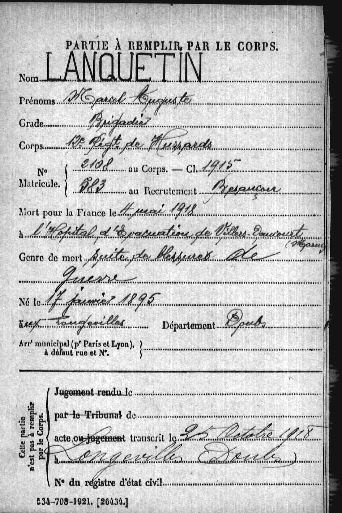 PARTIE À REMPLIR PAR LE CORPS.
Nom LANQUETIN
Prénoms Marcel Auguste
Grade Brigadier
Corps Régt de Hussards
N° Matricule. 2108 au Corps. — Cl. 1915
883 au Recrutement Besançon
Mort pour la France le 4 mai 1918
à l'Hôpital d'Evacuation de Villers-Daucourt (Marne)
Genre de mort suite de blessures de
guerre
Né le janvier 1895
aux Longevilles Département Doubs
Arrt municipal (pr Paris et Lyon), à défaut rue et N°.
Cette partie n'est pas à remplir par le Corps.
Jugement rendu le
par le Tribunal de
acte ou jugement transcrit le 25 Octobre 1918
à Longeville Doubs
N° du registre d'état civil
534-708-1921. [26434.]